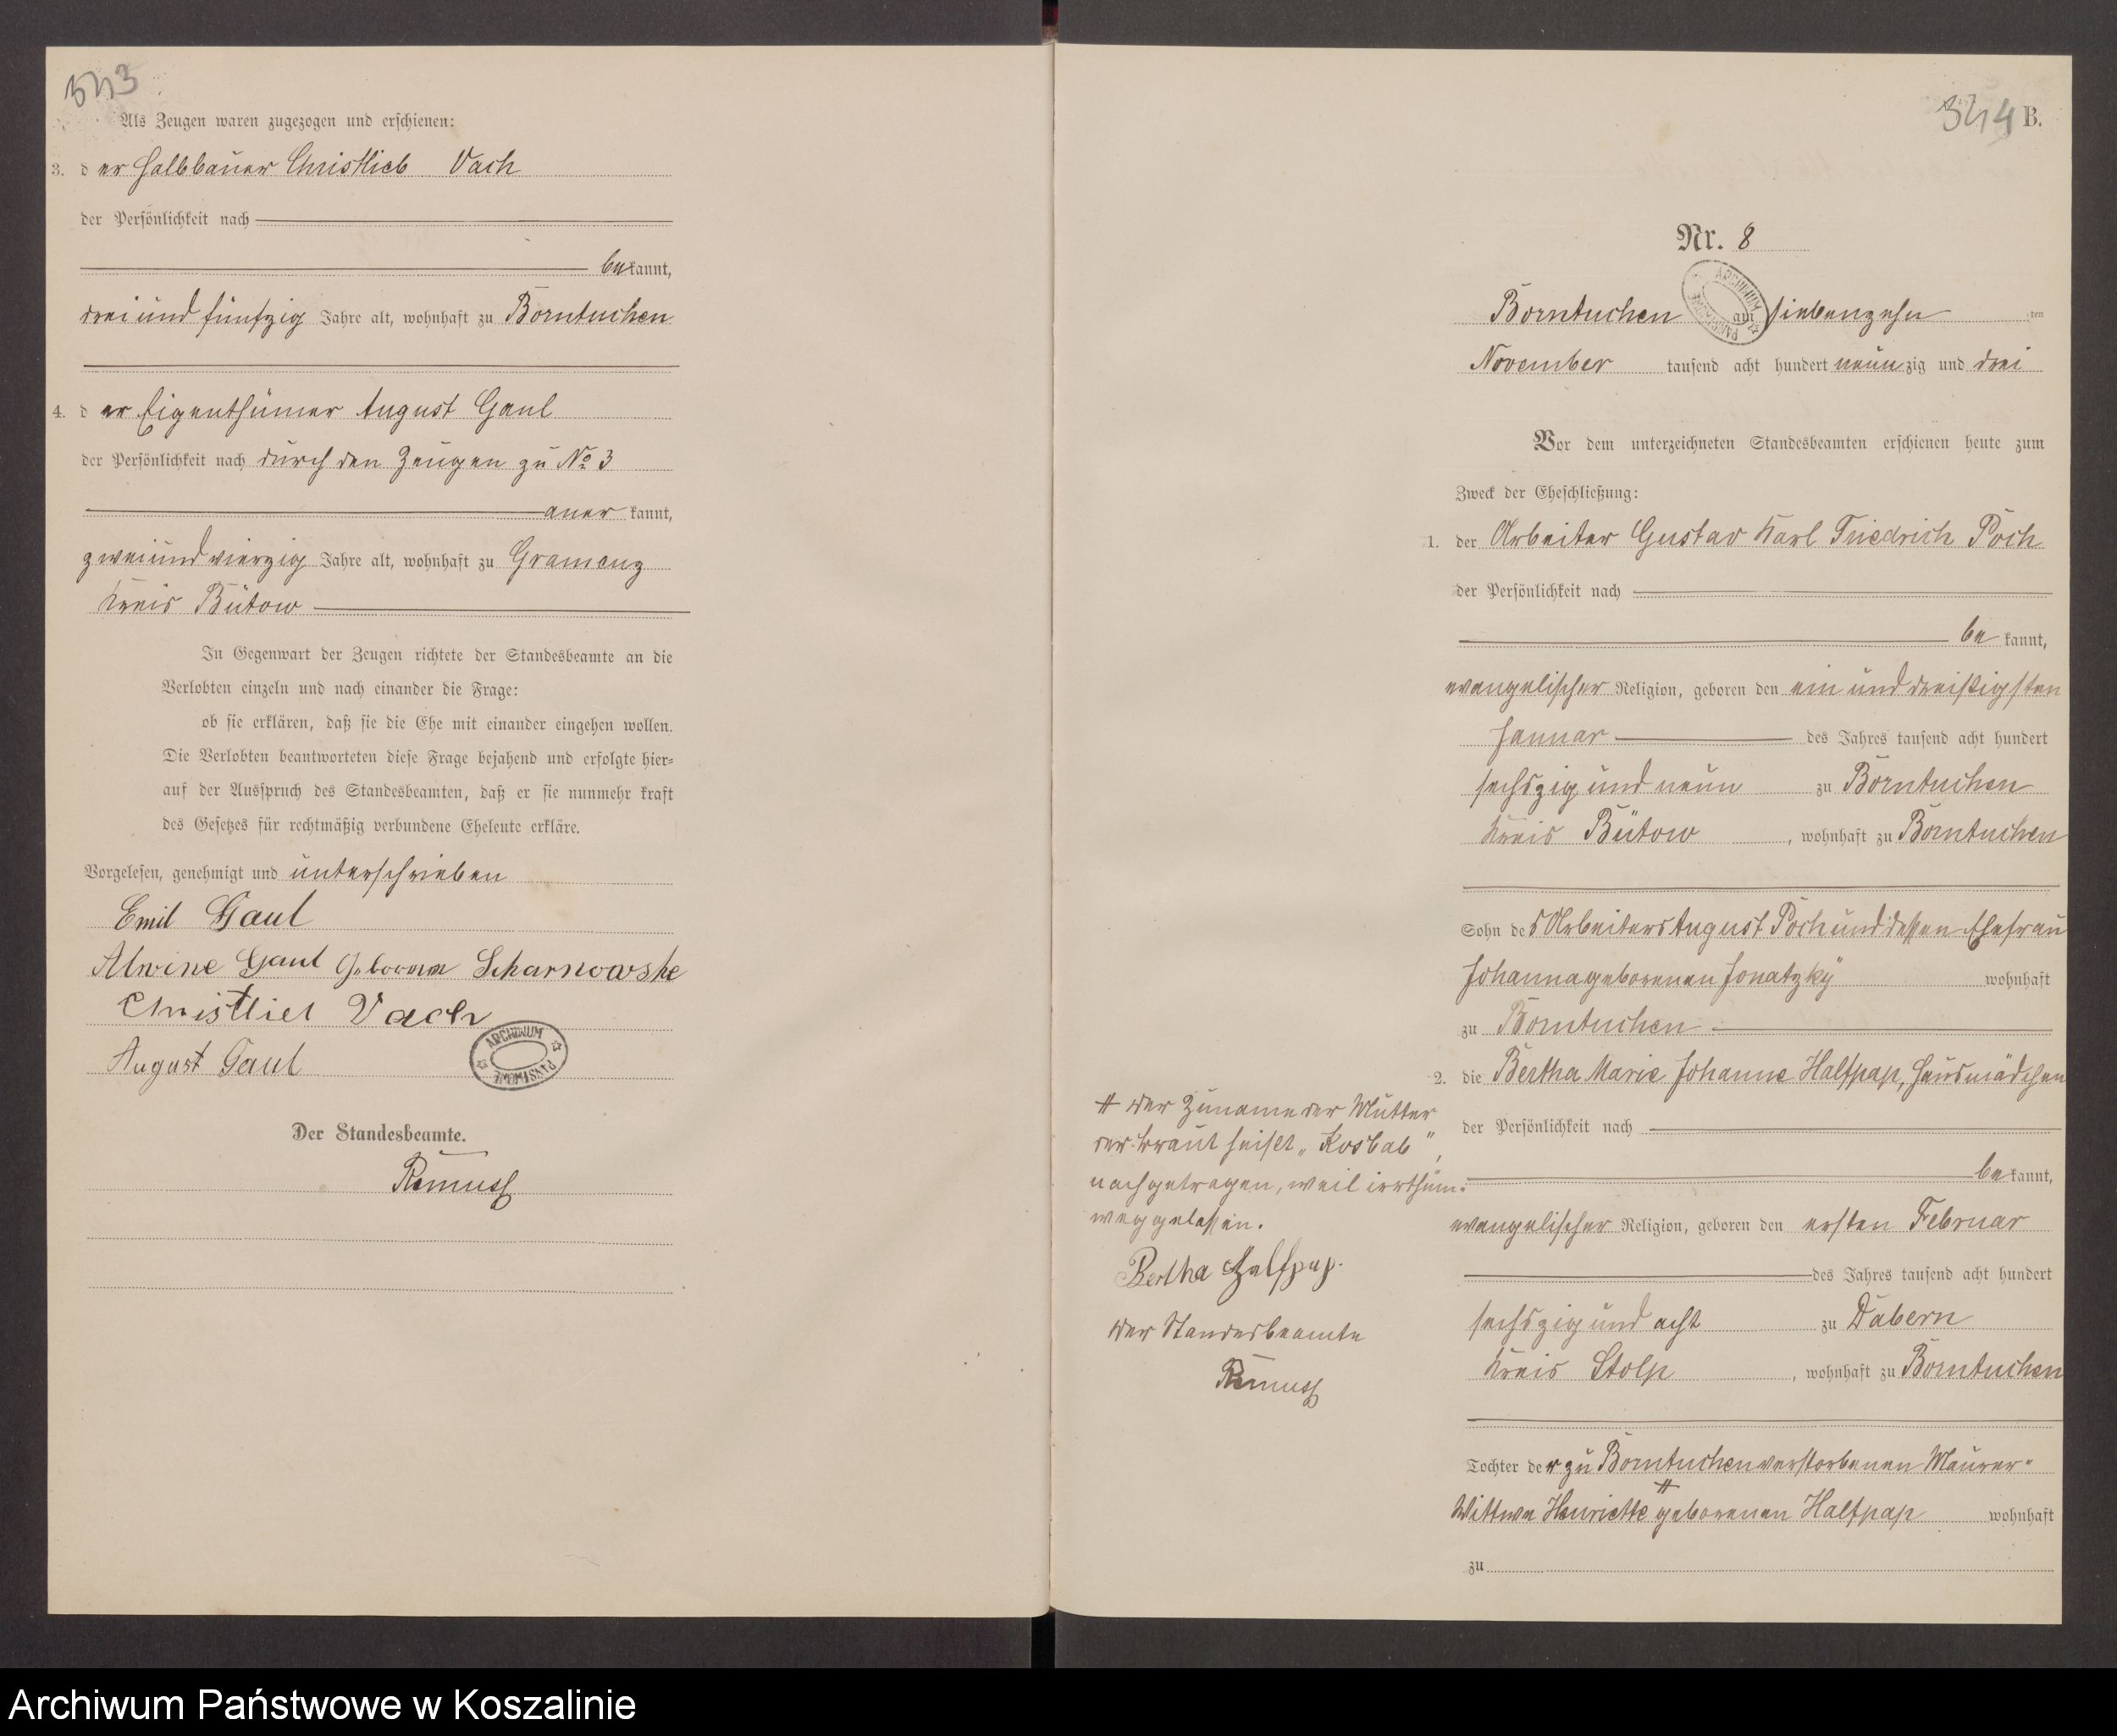 343
Als Zeugen waren zugezogen und erschienen:
3. der Halbbauer Christlieb Vach
der Persönlichkeit nach
bekannt,
dreiundfünfzig Jahre alt, wohnhaft zu Borntuchen
4. der Eigenthümer August Gaul
der Persönlichkeit nach durch den Zeugen zu No 3
anerkannt,
zweiundvierzig Jahre alt, wohnhaft zu Gramenz
Kreis Bütow
In Gegenwart der Zeugen richtete der Standesbeamte an die
Verlobten einzeln und nach einander die Frage:
ob sie erklären, daß sie die Ehe mit einander eingehen wollen.
Die Verlobten beantworteten diese Frage bejahend und erfolgte hier-
auf der Ausspruch des Standesbeamten, daß er sie nunmehr kraft
des Gesetzes für rechtmäßig verbundene Eheleute erkläre.
Vorgelesen, genehmigt und unterschrieben
Emil Gaul
Alwine Gaul Geborenen Scharnowske
Christlieb Vach
August Gaul
ARCHIWUM PAŃSTWOWE
Der Standesbeamte.
Remuss
344 B.
Nr. 8
ARCHIWUM PAŃSTWOWE
Borntuchen am siebenzehn ten
November tausend acht hundert neunzig und drei
Vor dem unterzeichneten Standesbeamten erschienen heute zum
Zweck der Eheschließung:
1. der Arbeiter Gustav Karl Friedrich Poch
der Persönlichkeit nach
bekannt,
evangelischer Religion, geboren den ein und dreißigsten
Januar des Jahres tausend acht hundert
sechszig und neun zu Borntuchen
Kreis Bütow, wohnhaft zu Borntuchen
Sohn des Arbeiters August Poch und dessen Ehefrau
Johanna geborenen Jonatzky wohnhaft
zu Borntuchen
2. die Bertha Marie Johanne Halfpap, Hausmädchen
der Persönlichkeit nach
bekannt,
evangelischer Religion, geboren den ersten Februar
des Jahres tausend acht hundert
sechszig und acht zu Dabern
Kreis Stolp, wohnhaft zu Borntuchen
Tochter der zu Borntuchen verstorbenen Maurer-
Wittwe Henriette # geborenen Halfpap wohnhaft
zu
# Der Zuname der Mutter
der Braut heißt „Kosbab",
nachgetragen, weil irrthüm.
weggelassen.
Bertha Halfpap.
Der Standesbeamte
Remuss
Archiwum Państwowe w Koszalinie